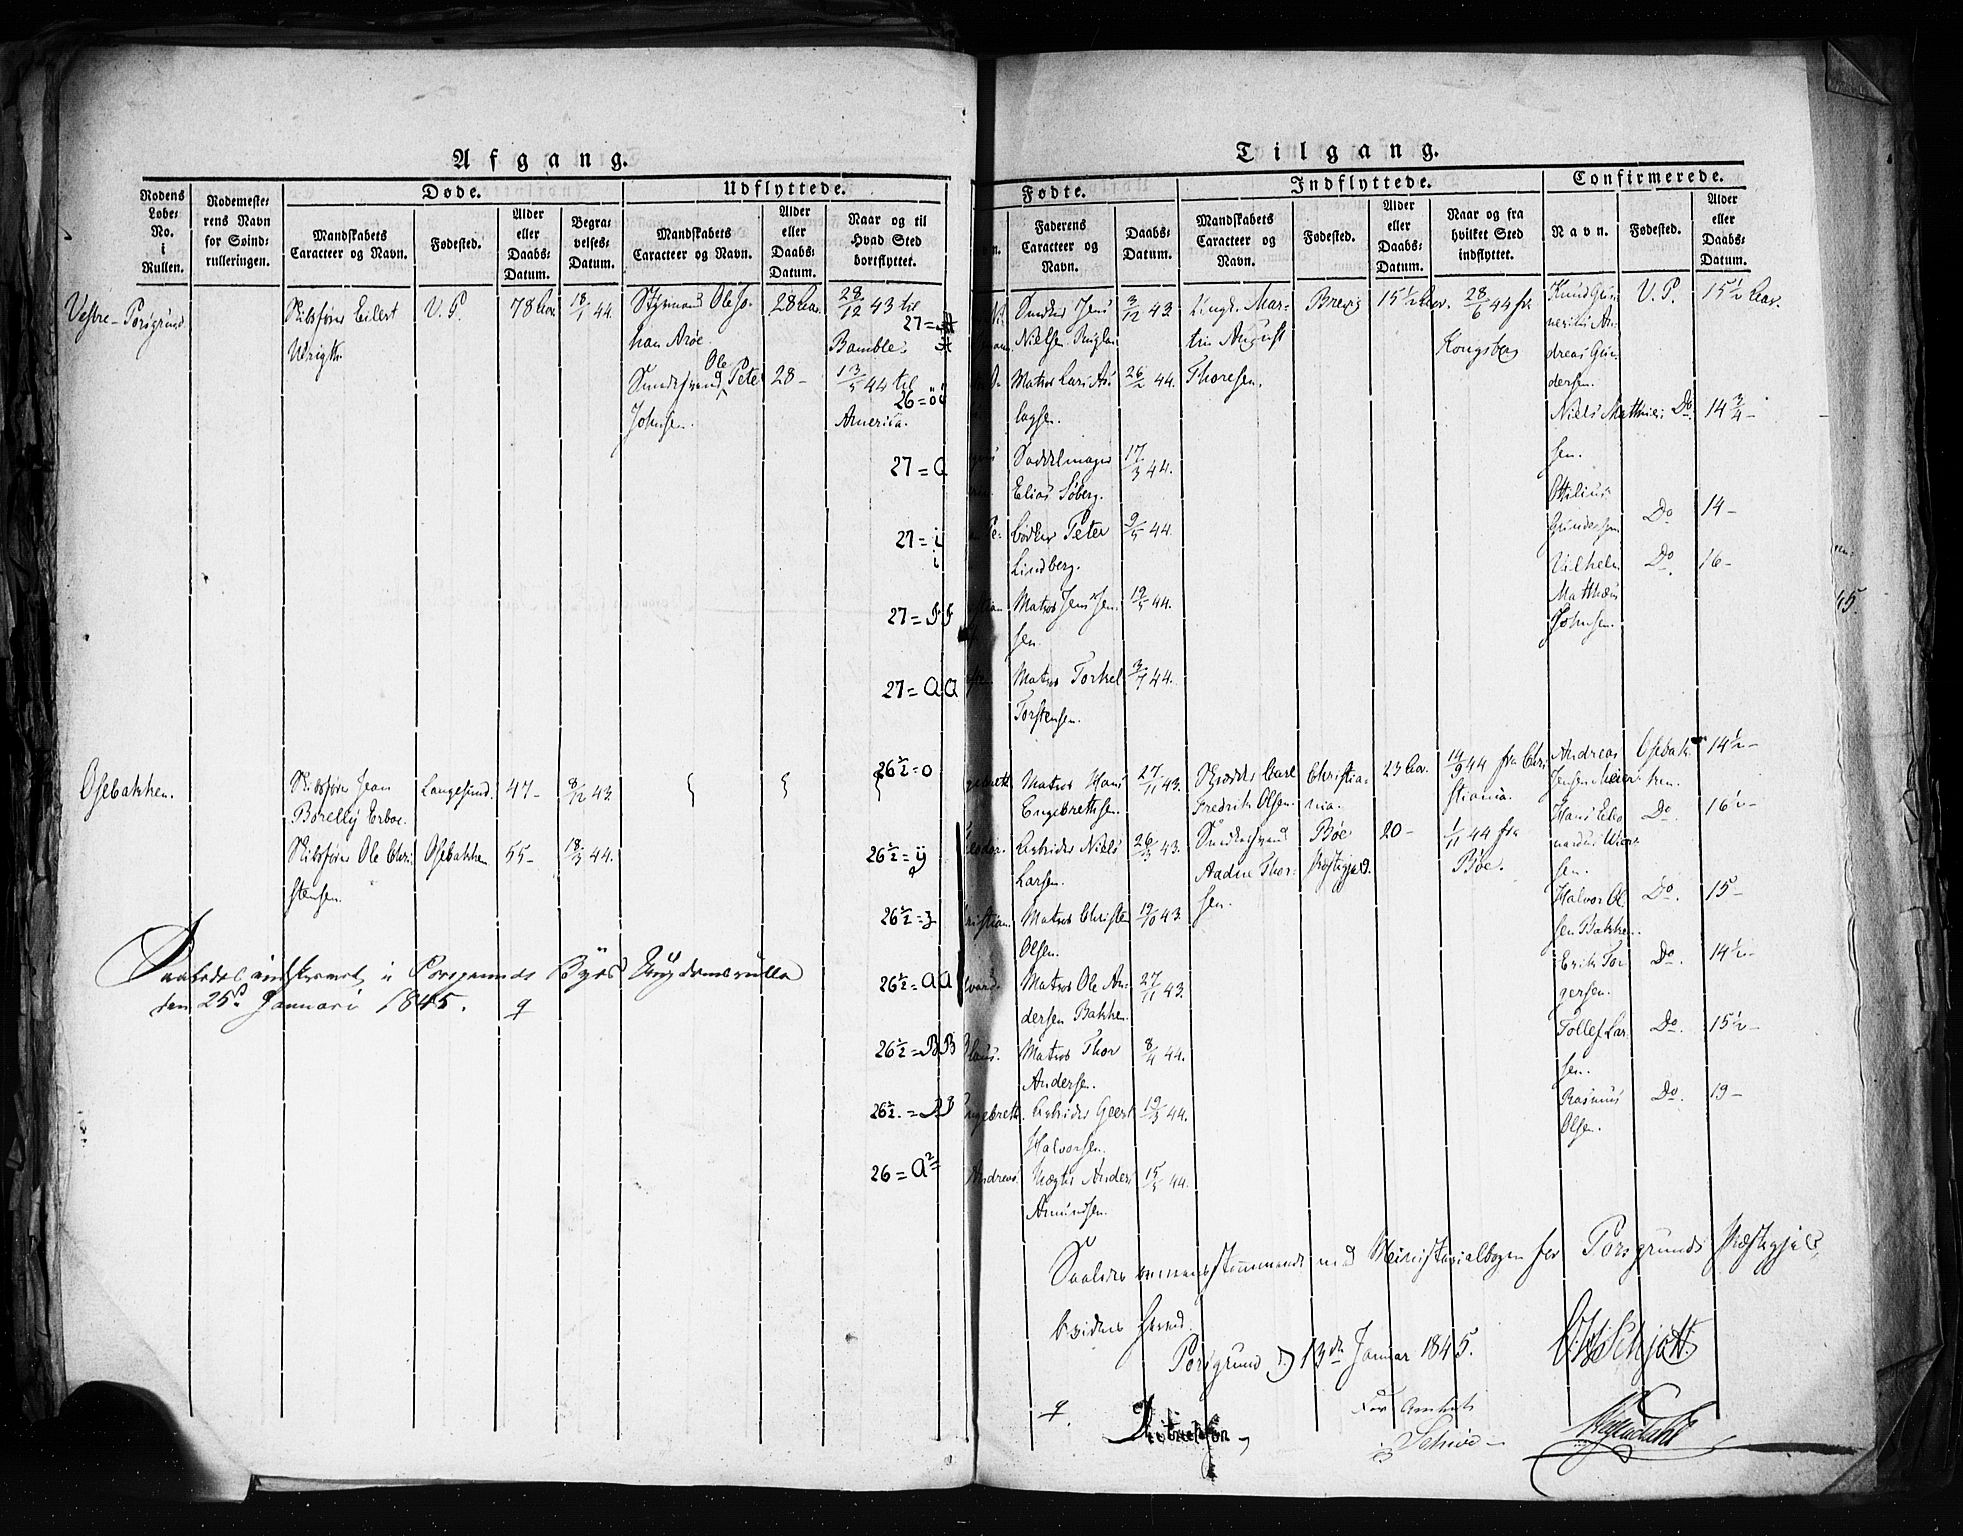 Afgang.
Rodens Løbe: No. i Rullen.
Rodemeste: rens Navn for Søind: rulleringen.
Døde.
Mandskabets Caracteer og Navn.
Fødested.
Alder eller Daabs: Datum.
Begra: velses: Datum.
Udflyttede.
Mandskabets Caracteer og Navn.
Alder eller Daabs: Datum.
Naar og til Hvad Sted bortflyttet.
Vestre-Porsgrund
Skibsfører Eilert
V. P.
78 Aar
18/1 44.
Styrmand Ole Jo-
han Arøe.
28 Aar.
28/12 43 til
Bamble.
27=
Ole
Peter
Johnsen.
28-
13/5 44 til
America.
26=
27=a
27=i
i
27=
27=aa
26½=o
26½=ÿ
26½=z
26½=aa
26½=BB
26½.=
26=a²
Osebakken.
Skibsfører Jean
Borelly Erboe.
Langesund.
47-
8/12 43.
Skibsfører Ole Chri-
stensen.
Osebakken
55-
18/3 44.
Saaledes indskrevet i Porsgrunds Byes Ungdomsrulle
den 25de Januari 1845.
Tilgang.
Fødte.
Faderens Caracteer og Navn.
Daabs: Datum.
Indflyttede.
Mandskabets Caracteer og Navn.
Fødested.
Alder eller Daabs: Datum.
Naar og fra hvilket Sted indflyttet.
Confirmerede.
Navn.
Fødested.
Alder eller Daabs: Datum.
Smed Jens
Nielsen
3/12 43.
Mar-
tin August
Thoresen.
Brevig
15½ Aar.
28/6 44 fr.
Kongsberg
Knud Gun-
nerius An-
dreas Gun-
dersen.
V. P.
15½ Aar.
Matros Lars As-
lagsen.
26/2 44.
Niels Matthie-
sen.
Do
14¾-
Saddelmager
Elias Søberg.
17/3 44.
Ottilius
Gundersen
Do
14-
Peter
Lindberg.
9/5 44.
Vilhelm
Matthæus
Johnsen.
Do.
16-
Matros Jens Jen-
sen.
19/5 44.
Matros Torkel
Torstensen.
3/7 44.
Matros Hans
Engebrethsen.
27/11 43.
Skrædder Carl
Fredrik Olsen.
Christia-
nia.
23 Aar.
14/9 44 fra Chri-
stiania.
Andreas
Jensen Meier
Osebak-
ken.
14½-
Arbeider Niels
Larsen.
26/3 43.
Aadne Thor-
sen.
Bøe
Præstegjeld.
20-
1/11 44 fra
Bøe.
Hans Leo
nardus
sen.
Do.
16½-
ristian.
Matros Christen
Olsen.
19/10 43.
Halvor Ol-
sen Bakken.
Do.
15-
Matros Ole An-
dersen Bakken.
27/11 43.
Erik Tor-
gersen.
Do.
14½-
Matros Thor
Andersen.
8/4 44.
Tollef Lar-
sen.
Do.
15½-
ngebreth.
Arbeider Geert
Halvorsen.
19/3 44.
Rasmus
Olsen.
Do.
19-
Andreas.
Vægter Anders
Amundsen.
15/5 44.
Saaledes overensstemmende med Ministerialbogen for Porsgrunds Præstegjeld,
bevidnes herved.
Porsgrund d. 13de Januar 1845.